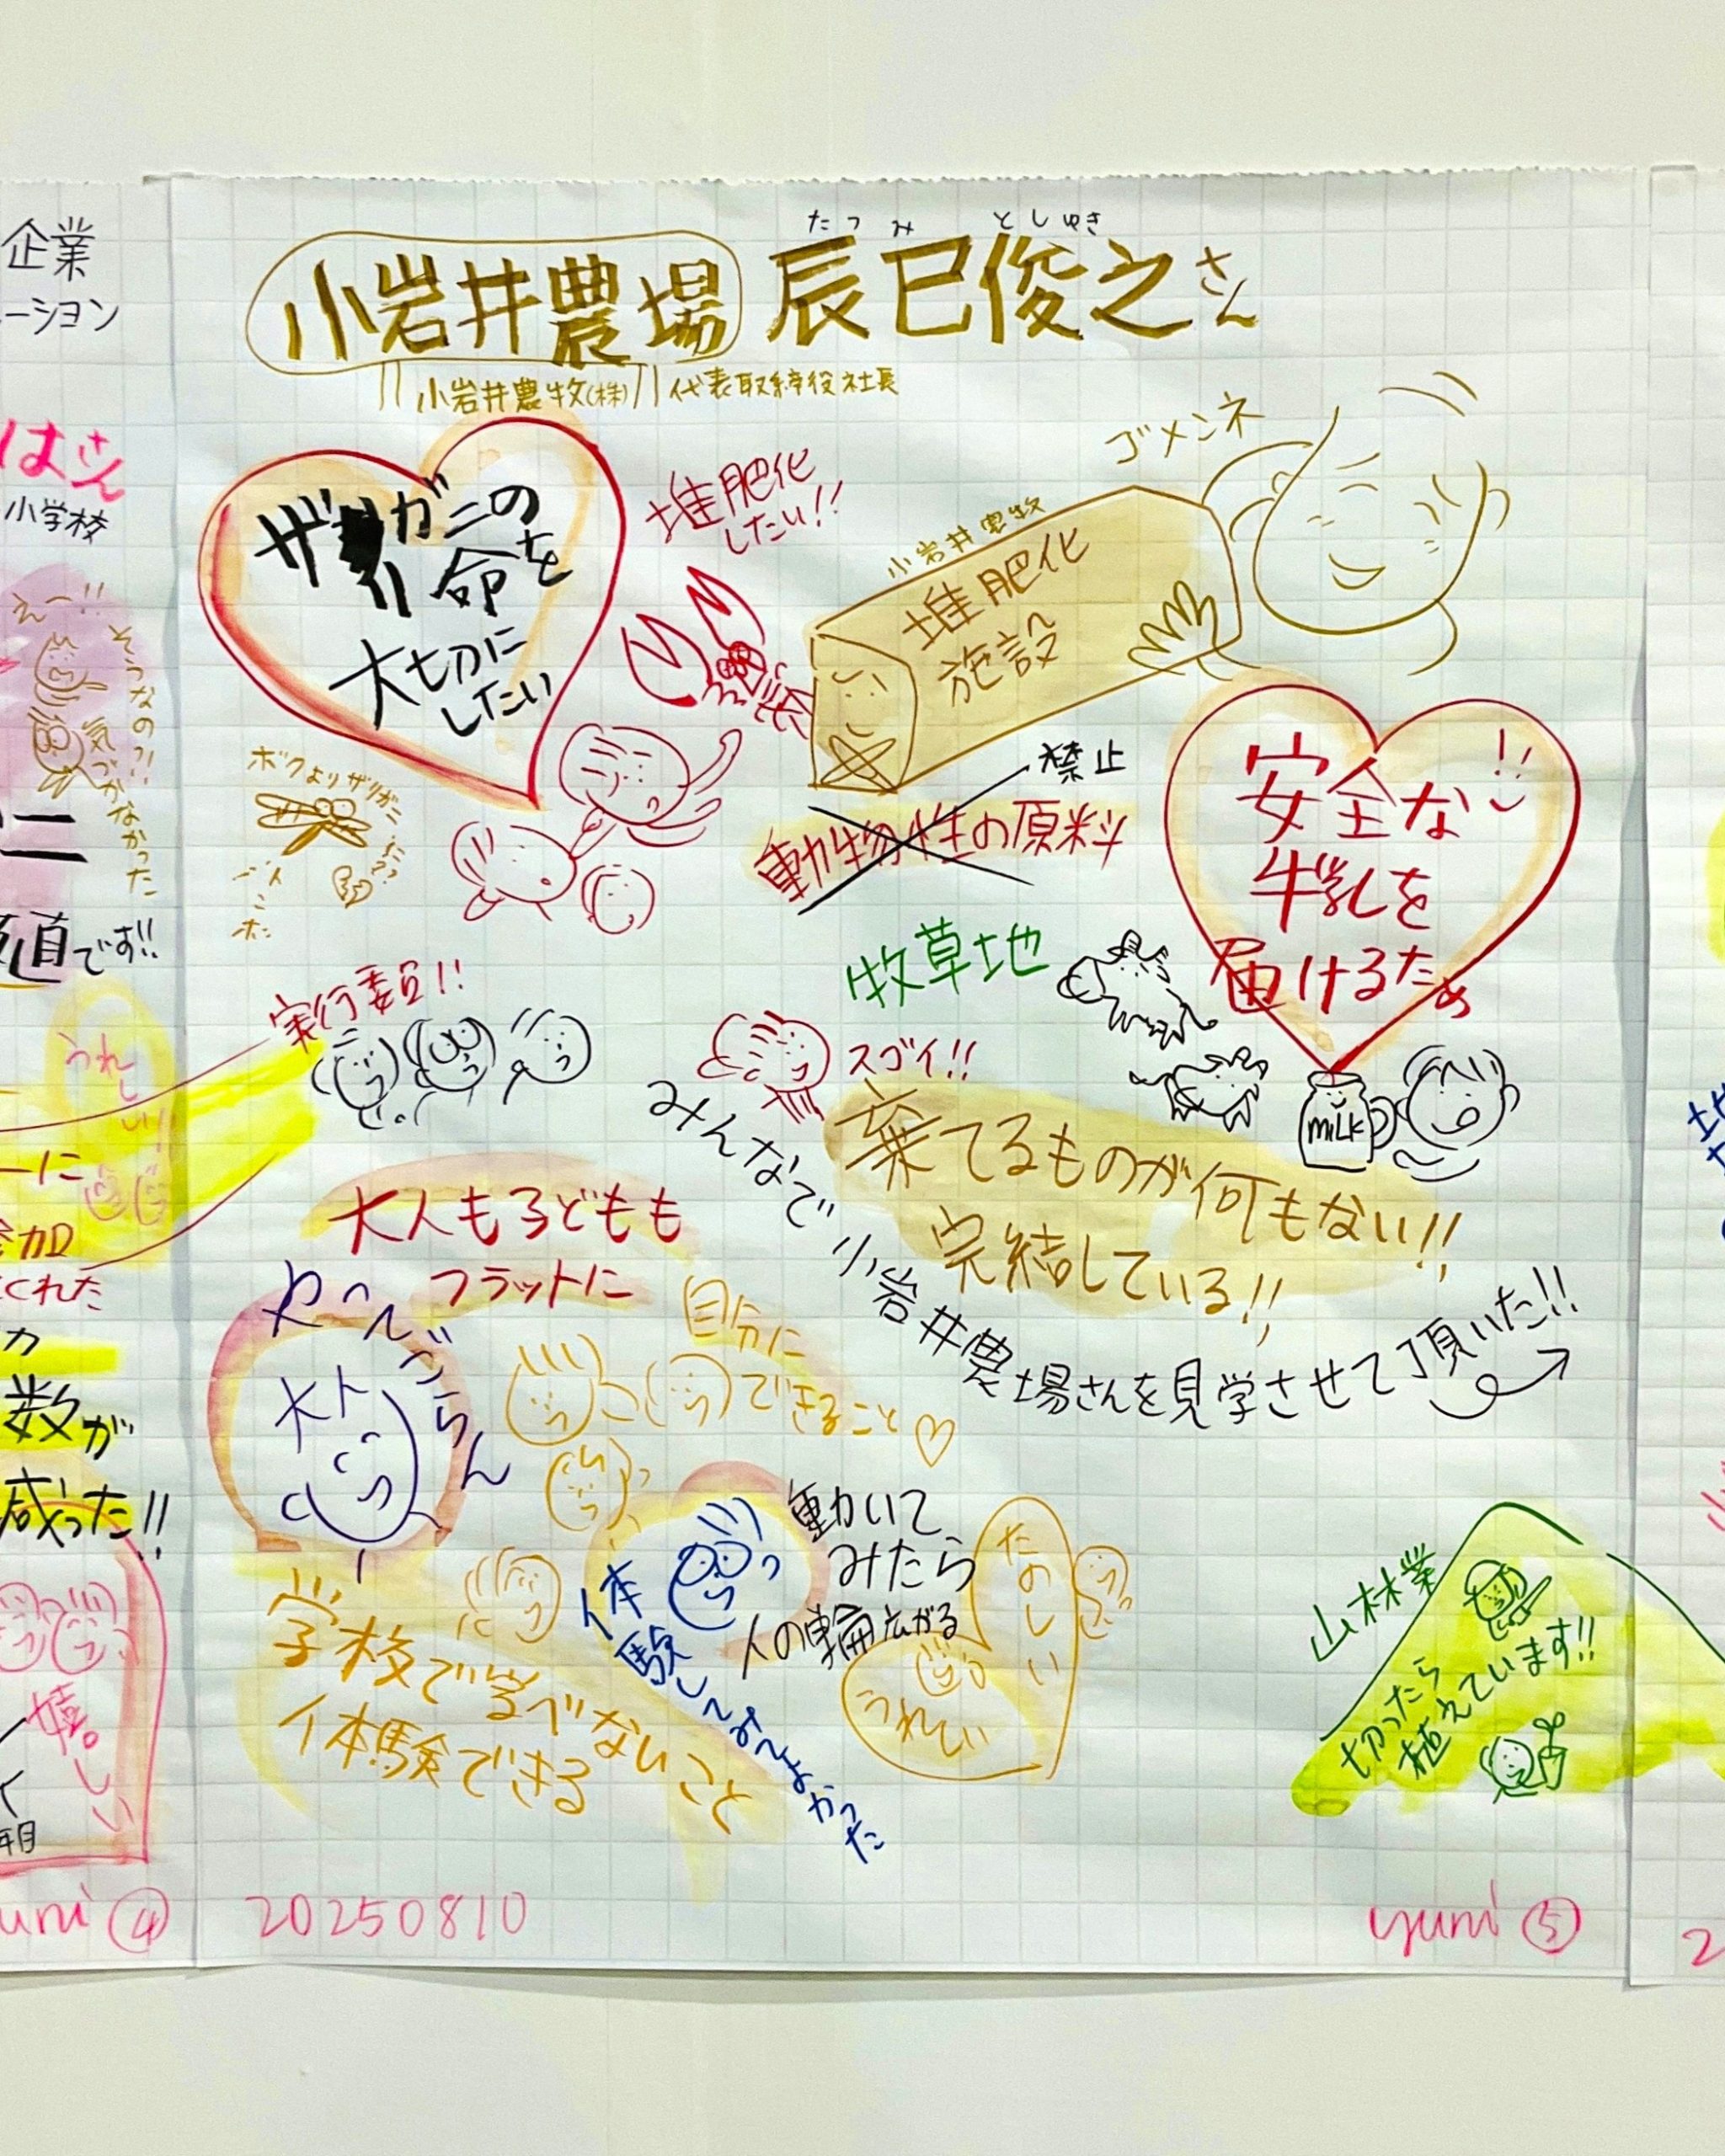 企業
ーション
はさん
小学校
えー!!
そうなの!!
気づかなかった
ニ
です!!
うれしい!!
ーに
参加
くれた
カ
数が
減った!!
嬉しい
年目
yumi ④
たつみ としゆき
小岩井農場 辰巳俊之さん
小岩井農牧(株) 代表取締役社長
ザリガニの
命を
大切に
したい
堆肥化
したい!!
ゴメンネ
小岩井農牧
堆肥化
施設
禁止
動物性の原料
安全な!!
牛乳を
届けるため
ボクよりザリガニ
牧草地
MILK
実行委員!!
スゴイ!!
棄てるものが何もない!!
完結している!!
みんなで小岩井農場さんを見学させて頂いた!!
大人も子どもも
フラットに
やってごらん
大人
自分に
できること♡
動いて
みたら
人の輪広がる
たのしい
うれしい
体験してみてよかった
学校で学べないこと
体験できる
山林業
切ったら
植えています!!
20250810
yumi ⑤
2